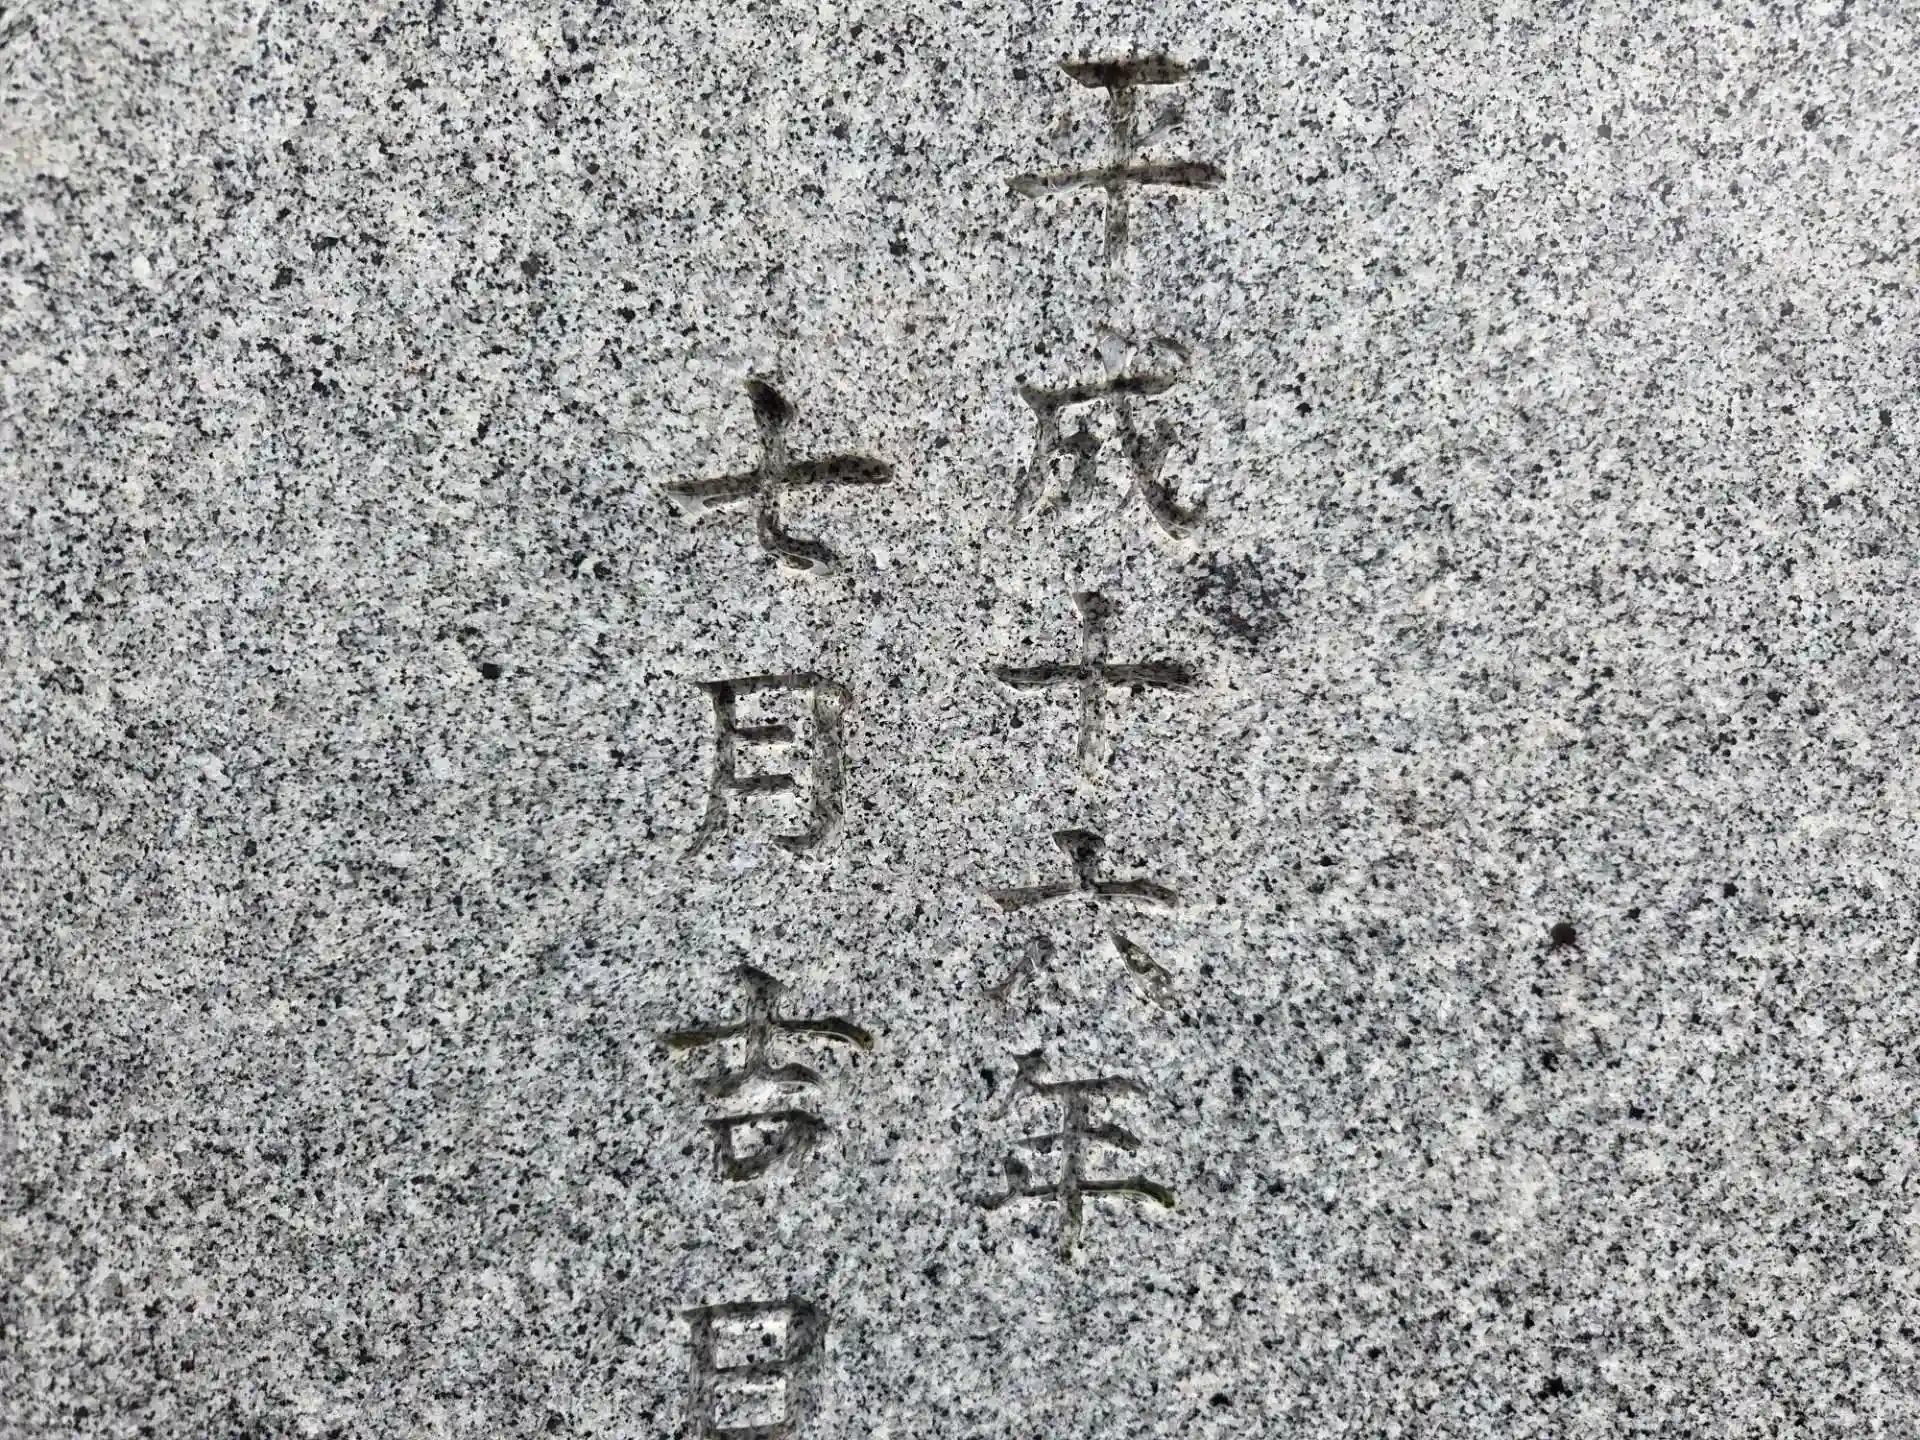 平成十六年
七月吉日